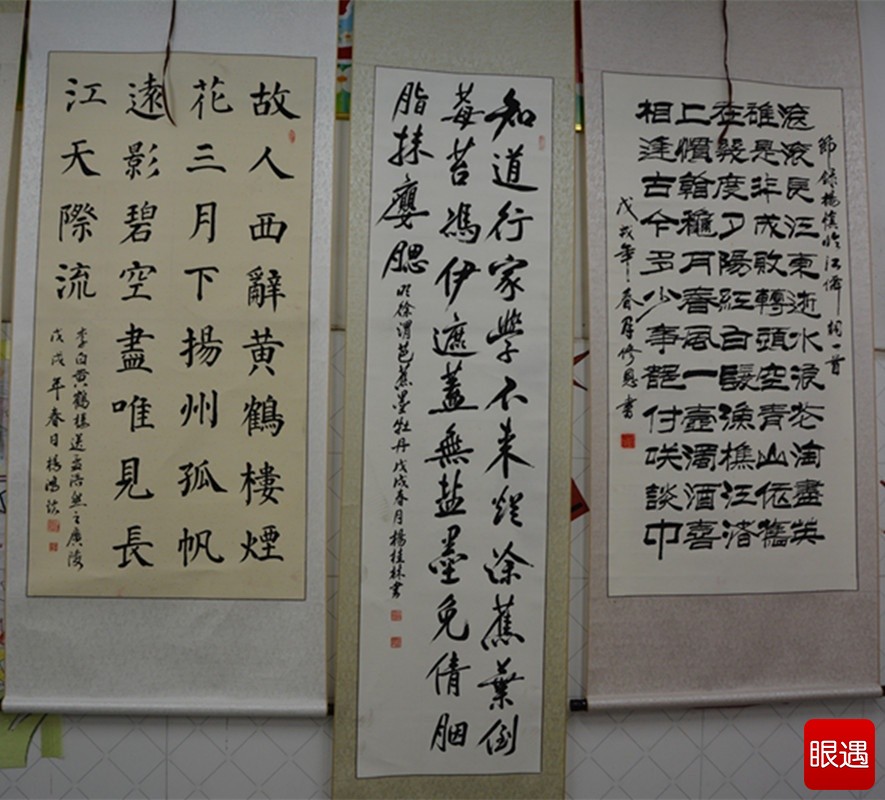 故人西辭黄鶴樓煙
花三月下揚州孤帆
遠影碧空盡唯見長
江天際流
李白黄鶴樓送孟浩然之廣陵
戊戌年春日楊鴻
知道行家學不来爛塗蕉葉倒
莓苔馮伊遮蓋無盐墨免倩胭
脂抹癭腮
明徐渭芭蕉墨牡丹戊戌春月楊桂林書
節錄楊慎臨江僊詞一首
滾滾長江東逝水浪花淘盡英
雄是非成敗轉頭空青山依舊
在幾度夕陽紅白髮漁樵江渚
上慣看穐月春風一壺濁酒喜
相逢古今多少事都付笑談中
戊戌年春月修恩書
眼遇